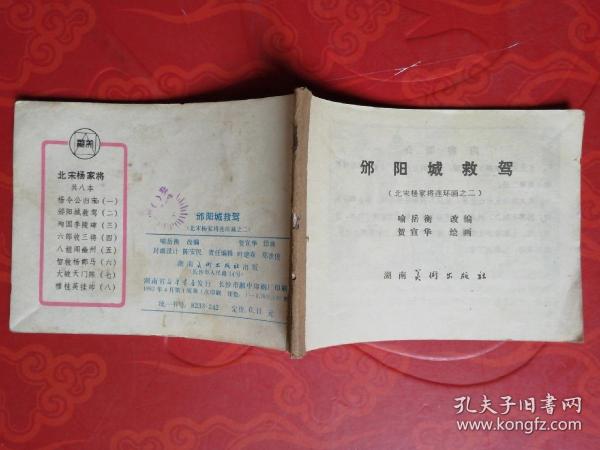 北宋杨家将
共八本
杨令公归宋(一)
邠阳城救驾(二)
殉国李陵碑(三)
六郎收三将(四)
八姐闹幽州(五)
智救杨郡马(六)
大破天门阵(七)
穆桂英挂帅(八)
邠阳城救驾
(北宋杨家将连环画之二)
喻岳衡 改编 贺宣华 绘画
封面设计 陈安民 责任编辑
湖南美术出版社出版
(长沙市人民路14号)
湖南省新华书店发行 长沙市湘中印刷厂印刷
统一书号:8233·242 定价:0.11元
邠阳城救驾
(北宋杨家将连环画之二)
喻岳衡 改编
贺宣华 绘画
湖南美术出版社
孔夫子旧书网
www.kongfz.com